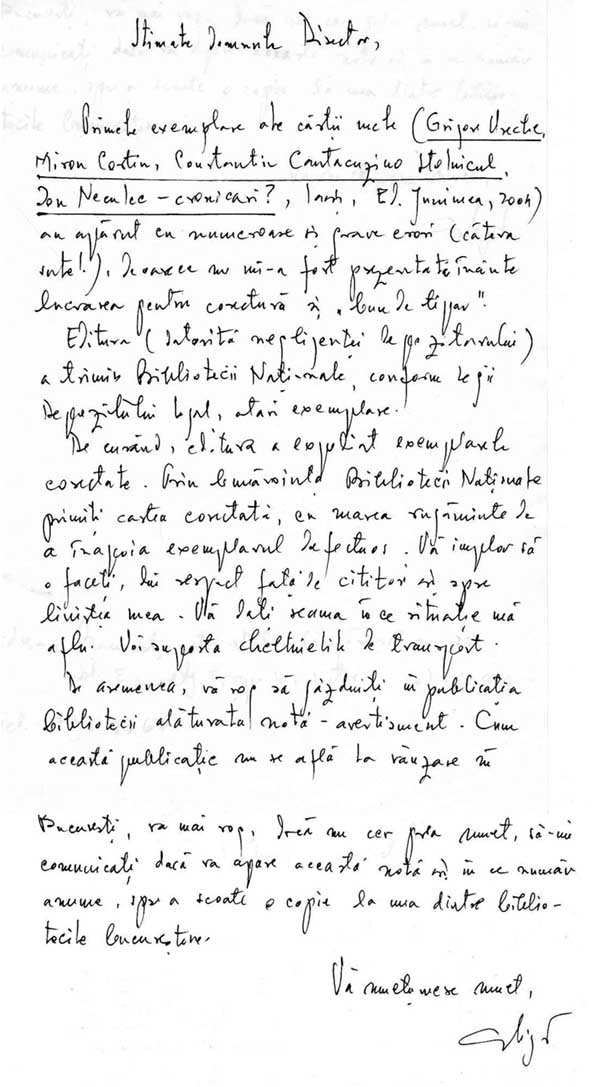 Stimate Domnule Director,
Primele exemplare ale cărții mele (Grigore Ureche,
Miron Costin, Constantin Cantacuzino Stolnicul,
Ion Neculce - cronicari?, Iași, Ed. Junimea, 2004)
au apărut cu numeroase și grave erori (câteva
sute!), deoarece nu mi-a fost prezentată înainte
lucrarea pentru corectură și „bun de tipar".
Editura (datorită negligenței depozitarului)
a trimis Bibliotecii Naționale, conform Legii
Depozitului legal, atari exemplare.
De curând, editura a expediat exemplarele
corectate. Prin bunăvoința Bibliotecii Naționale
primiți cartea corectată, cu marea rugăminte de
a înapoia exemplarul defectuos. Vă implor să
o faceți, din respect față de cititori și spre
liniștea mea. Vă dați seama în ce situație mă
aflu. Voi suporta cheltuielile de transport.
De asemenea, vă rog să găzduiți în publicația
bibliotecii alăturata notă - avertisment. Cum
această publicație nu se află la vânzare în
București, vă mai rog, dacă nu cer prea mult, să-mi
comunicați dacă va apare această notă și în ce număr
anume, spre a scoate o copie la una dintre biblio-
tecile bucureștene.
Vă mulțumesc mult,